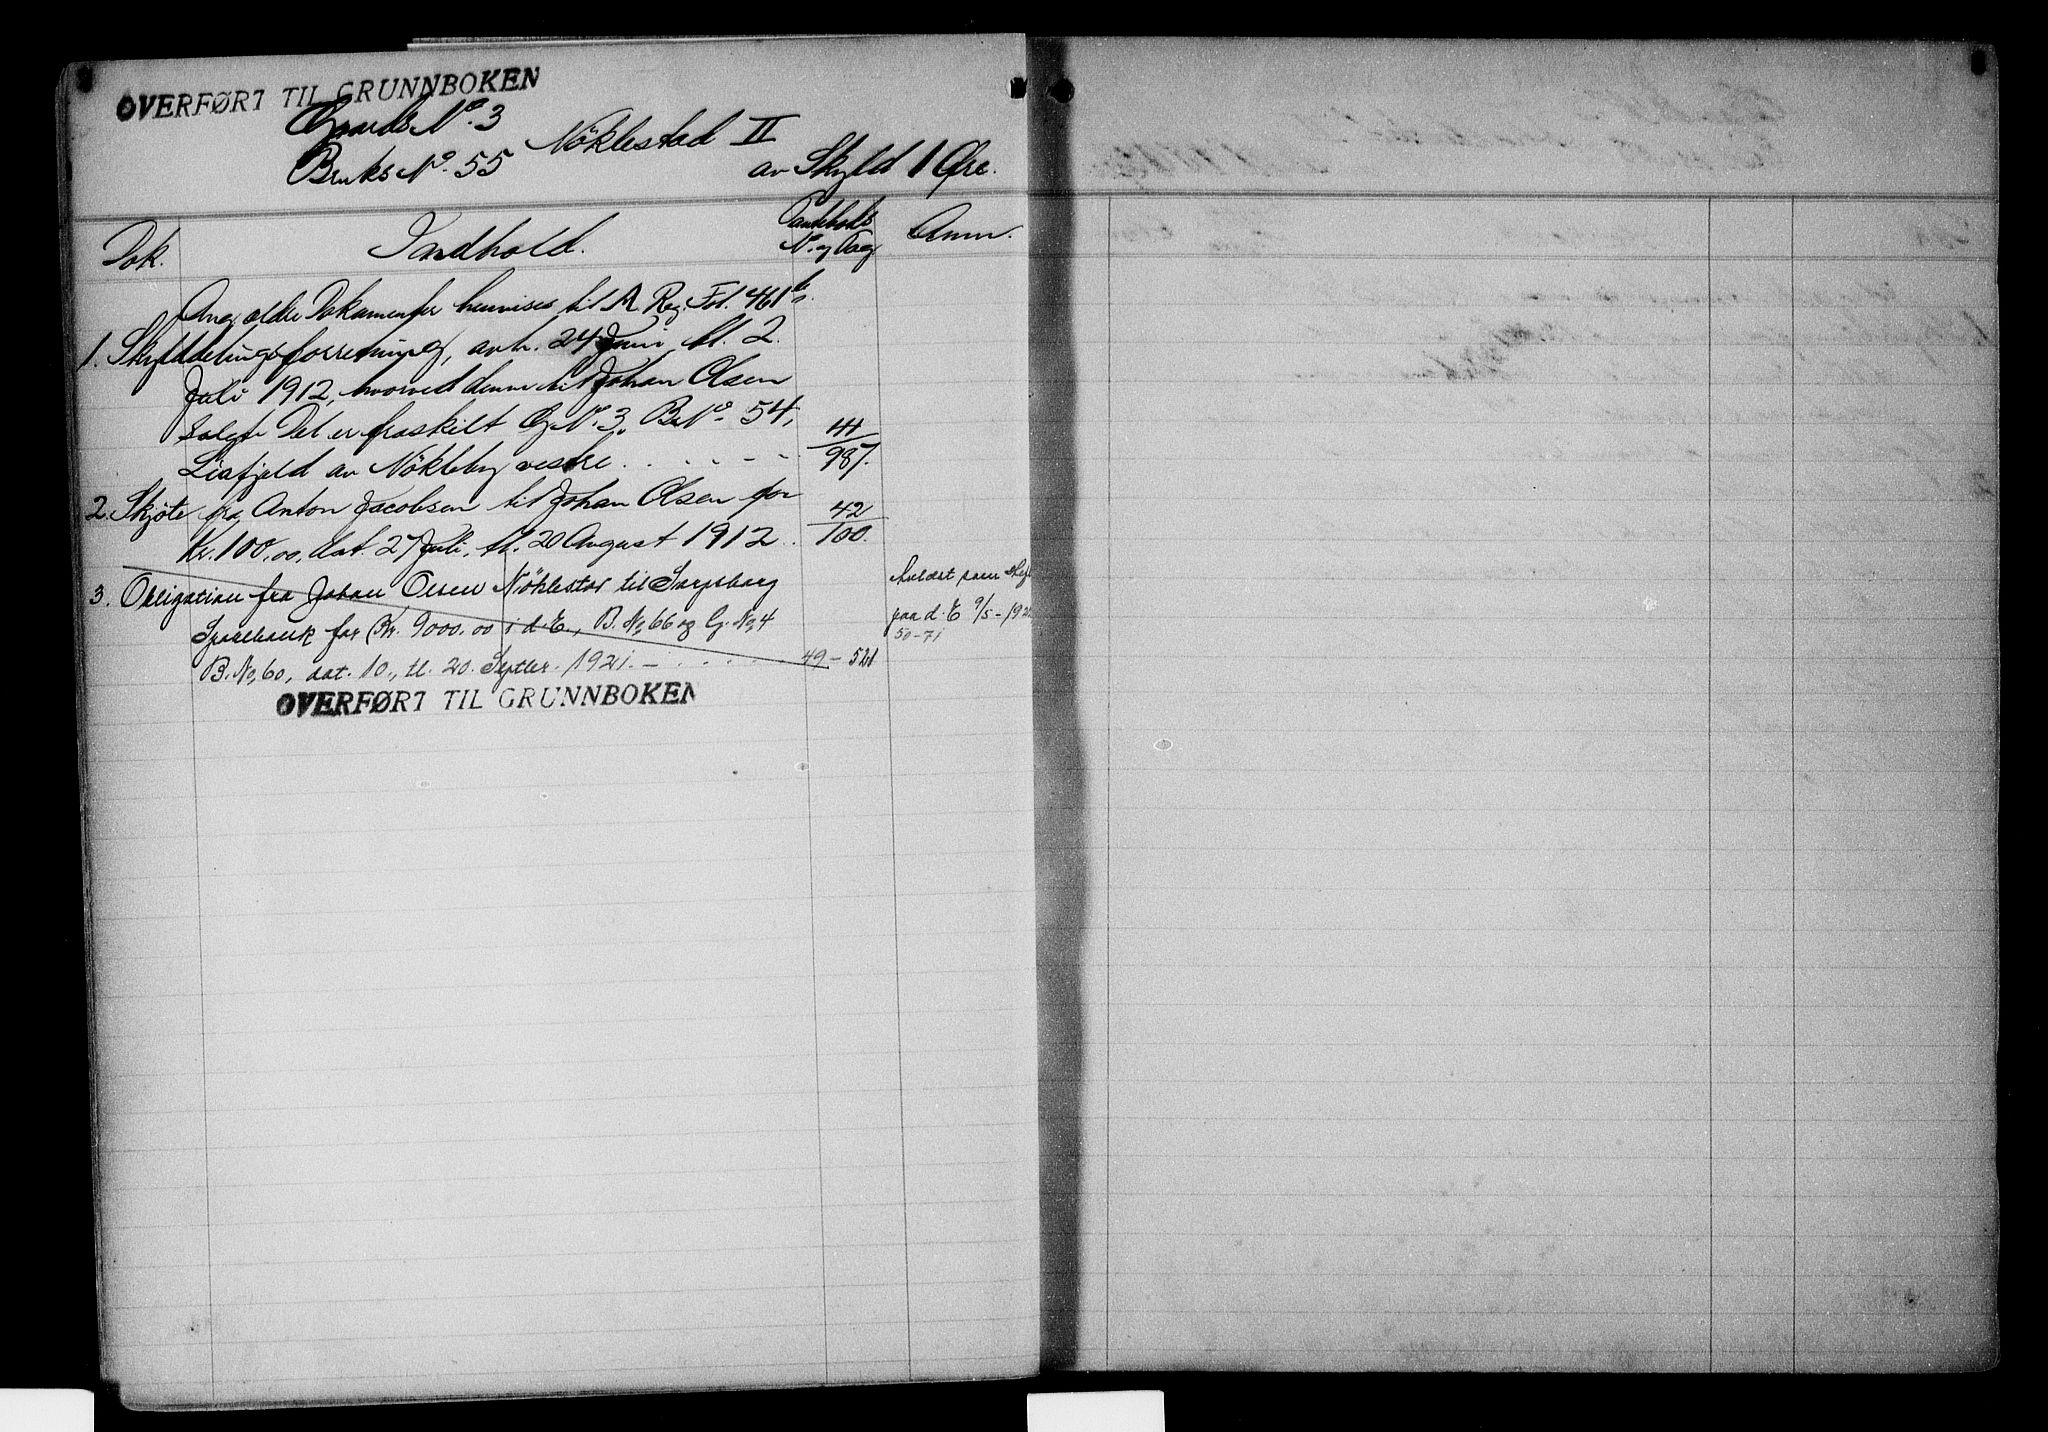 OVERFØRT TIL GRUNNBOKEN
Gaards No. 3
Bruks No. 55
Nöklestad II
av Skyld 1 Øre.
Dok.
Indhold.
Panteboks
No. og Pag
Anm.
Ang. ældre Dokumenter henvises til A. Reg. Fol. 461 b.
1. Skylddelingsforretning, avh. 24 Juni, tl. 2.
Juli 1912, hvorved denne til Johan Olsen
solgte Del er fraskilt G. No. 3, B. No. 54,
Liafjeld av Nökleby vestre. 41/987.
2. Skjöte fra Anton Jacobsen til Johan Olsen for
Kr. 100.00, dat. 27 Juli, tl. 20 August 1912. 42/100.
3. Obligation fra Johan Olsen Nöklestad til Sarpsborg
Sparebank for Kr. 9000.00 i d. E, B. No, 66 og G. No, 4
B. No, 60, dat. 10., tl. 20. Septbr. 1921. — 49 - 521
Avlæst som
paa d. E 9/5 - 192
50-71
OVERFØRT TIL GRUNNBOKEN